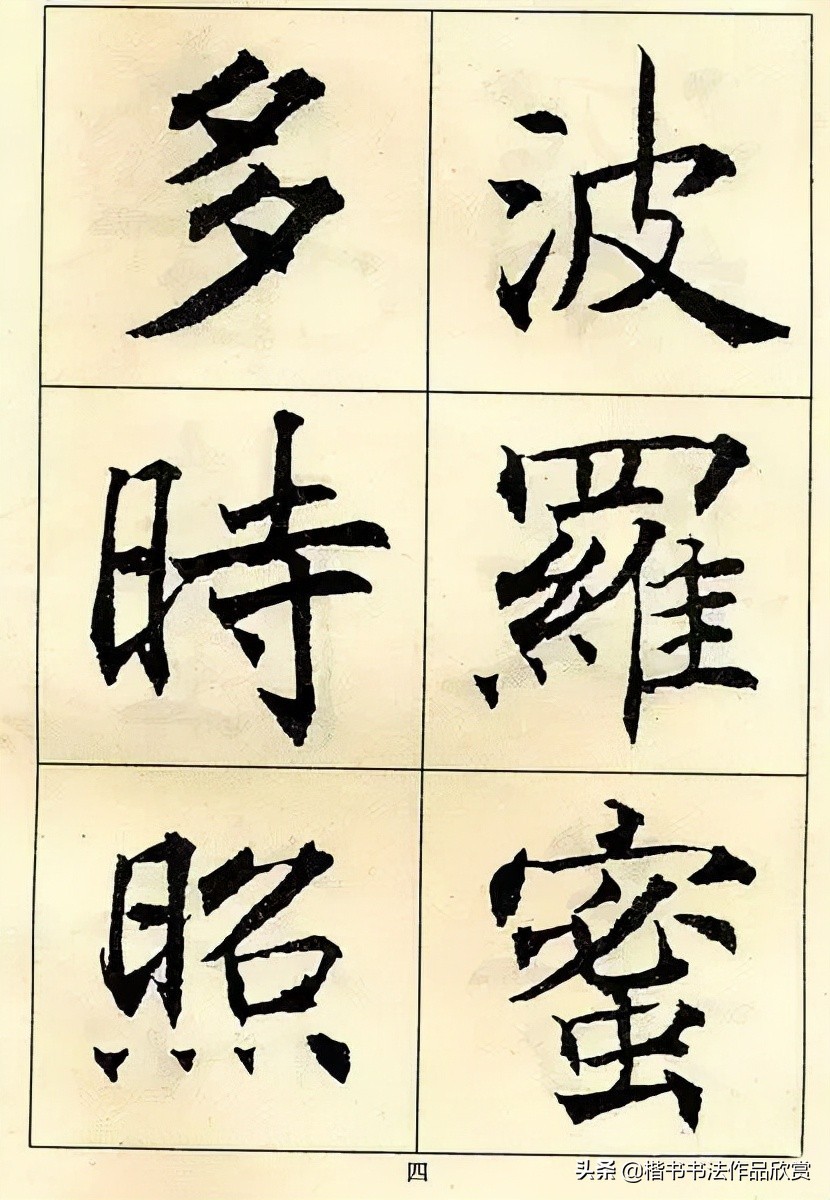 波羅蜜
多時照
四
头条 @楷书书法作品欣赏